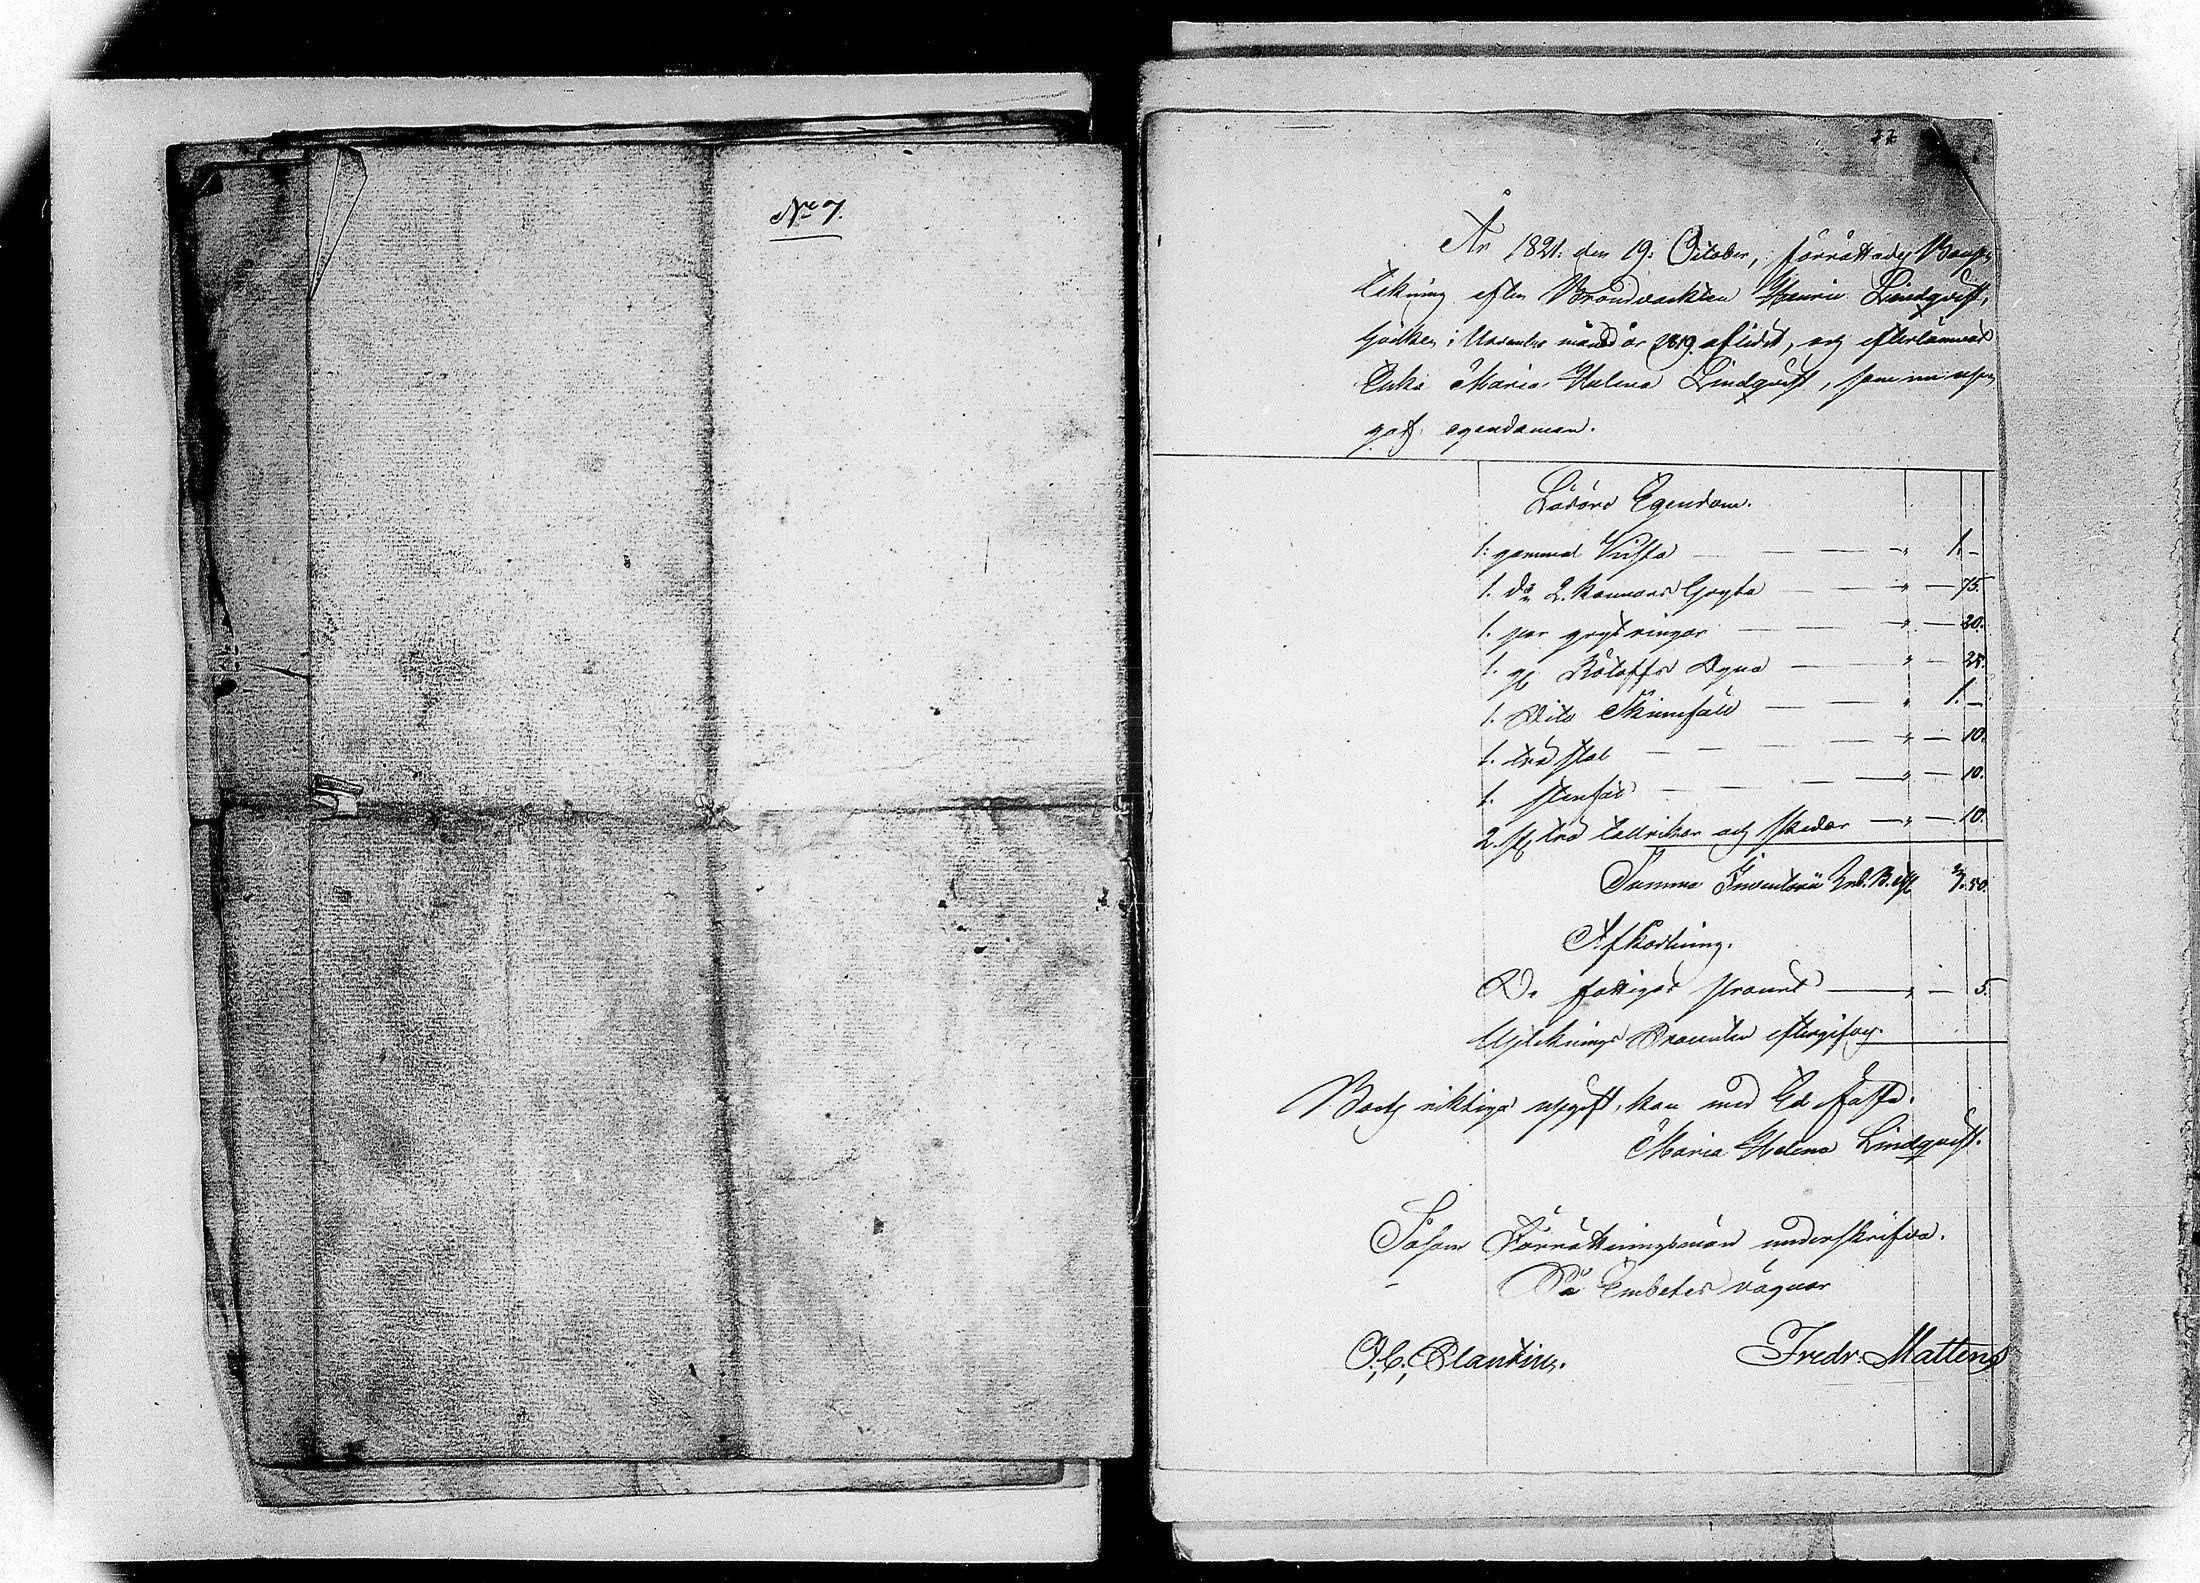 No 7.
22
År 1821. den 19. October, förrättades Boup-
tekning efter Brandvackten Henric Lindqvist,
hvilken i November månad år 1819. aflidit, och efterlämnat
Enka Maria Helena Lindqvist, som nu upp-
gaf egendomen.
Lösöre Egendom.
1. gammal Kista — — — " 1. –
1. do 2. kannors Gryta — — " — 75.
1. par grytringar — — " — 20.
1. gl. Dyna — — " — 25.
1. Dito Skinnfäll — — " 1. –
1. träd stol — — — " — 10.
1. stenfat — — — " — 10.
2. st. träd tallrikar och skedar — " — 10.
Summa Inventarii Rub. B. Ass. 3. 50.
Afkortning.
De fattigas procent — " — 5.
Upteknings Procenten eftergifven.
Boets riktiga upgift, kan med Ed fästa.
Maria Helena Lindqvist.
Såsom Förrättningsmän underskrifva.
På Embetes vägnar
O. C. Plantin. Fredr. Mattens